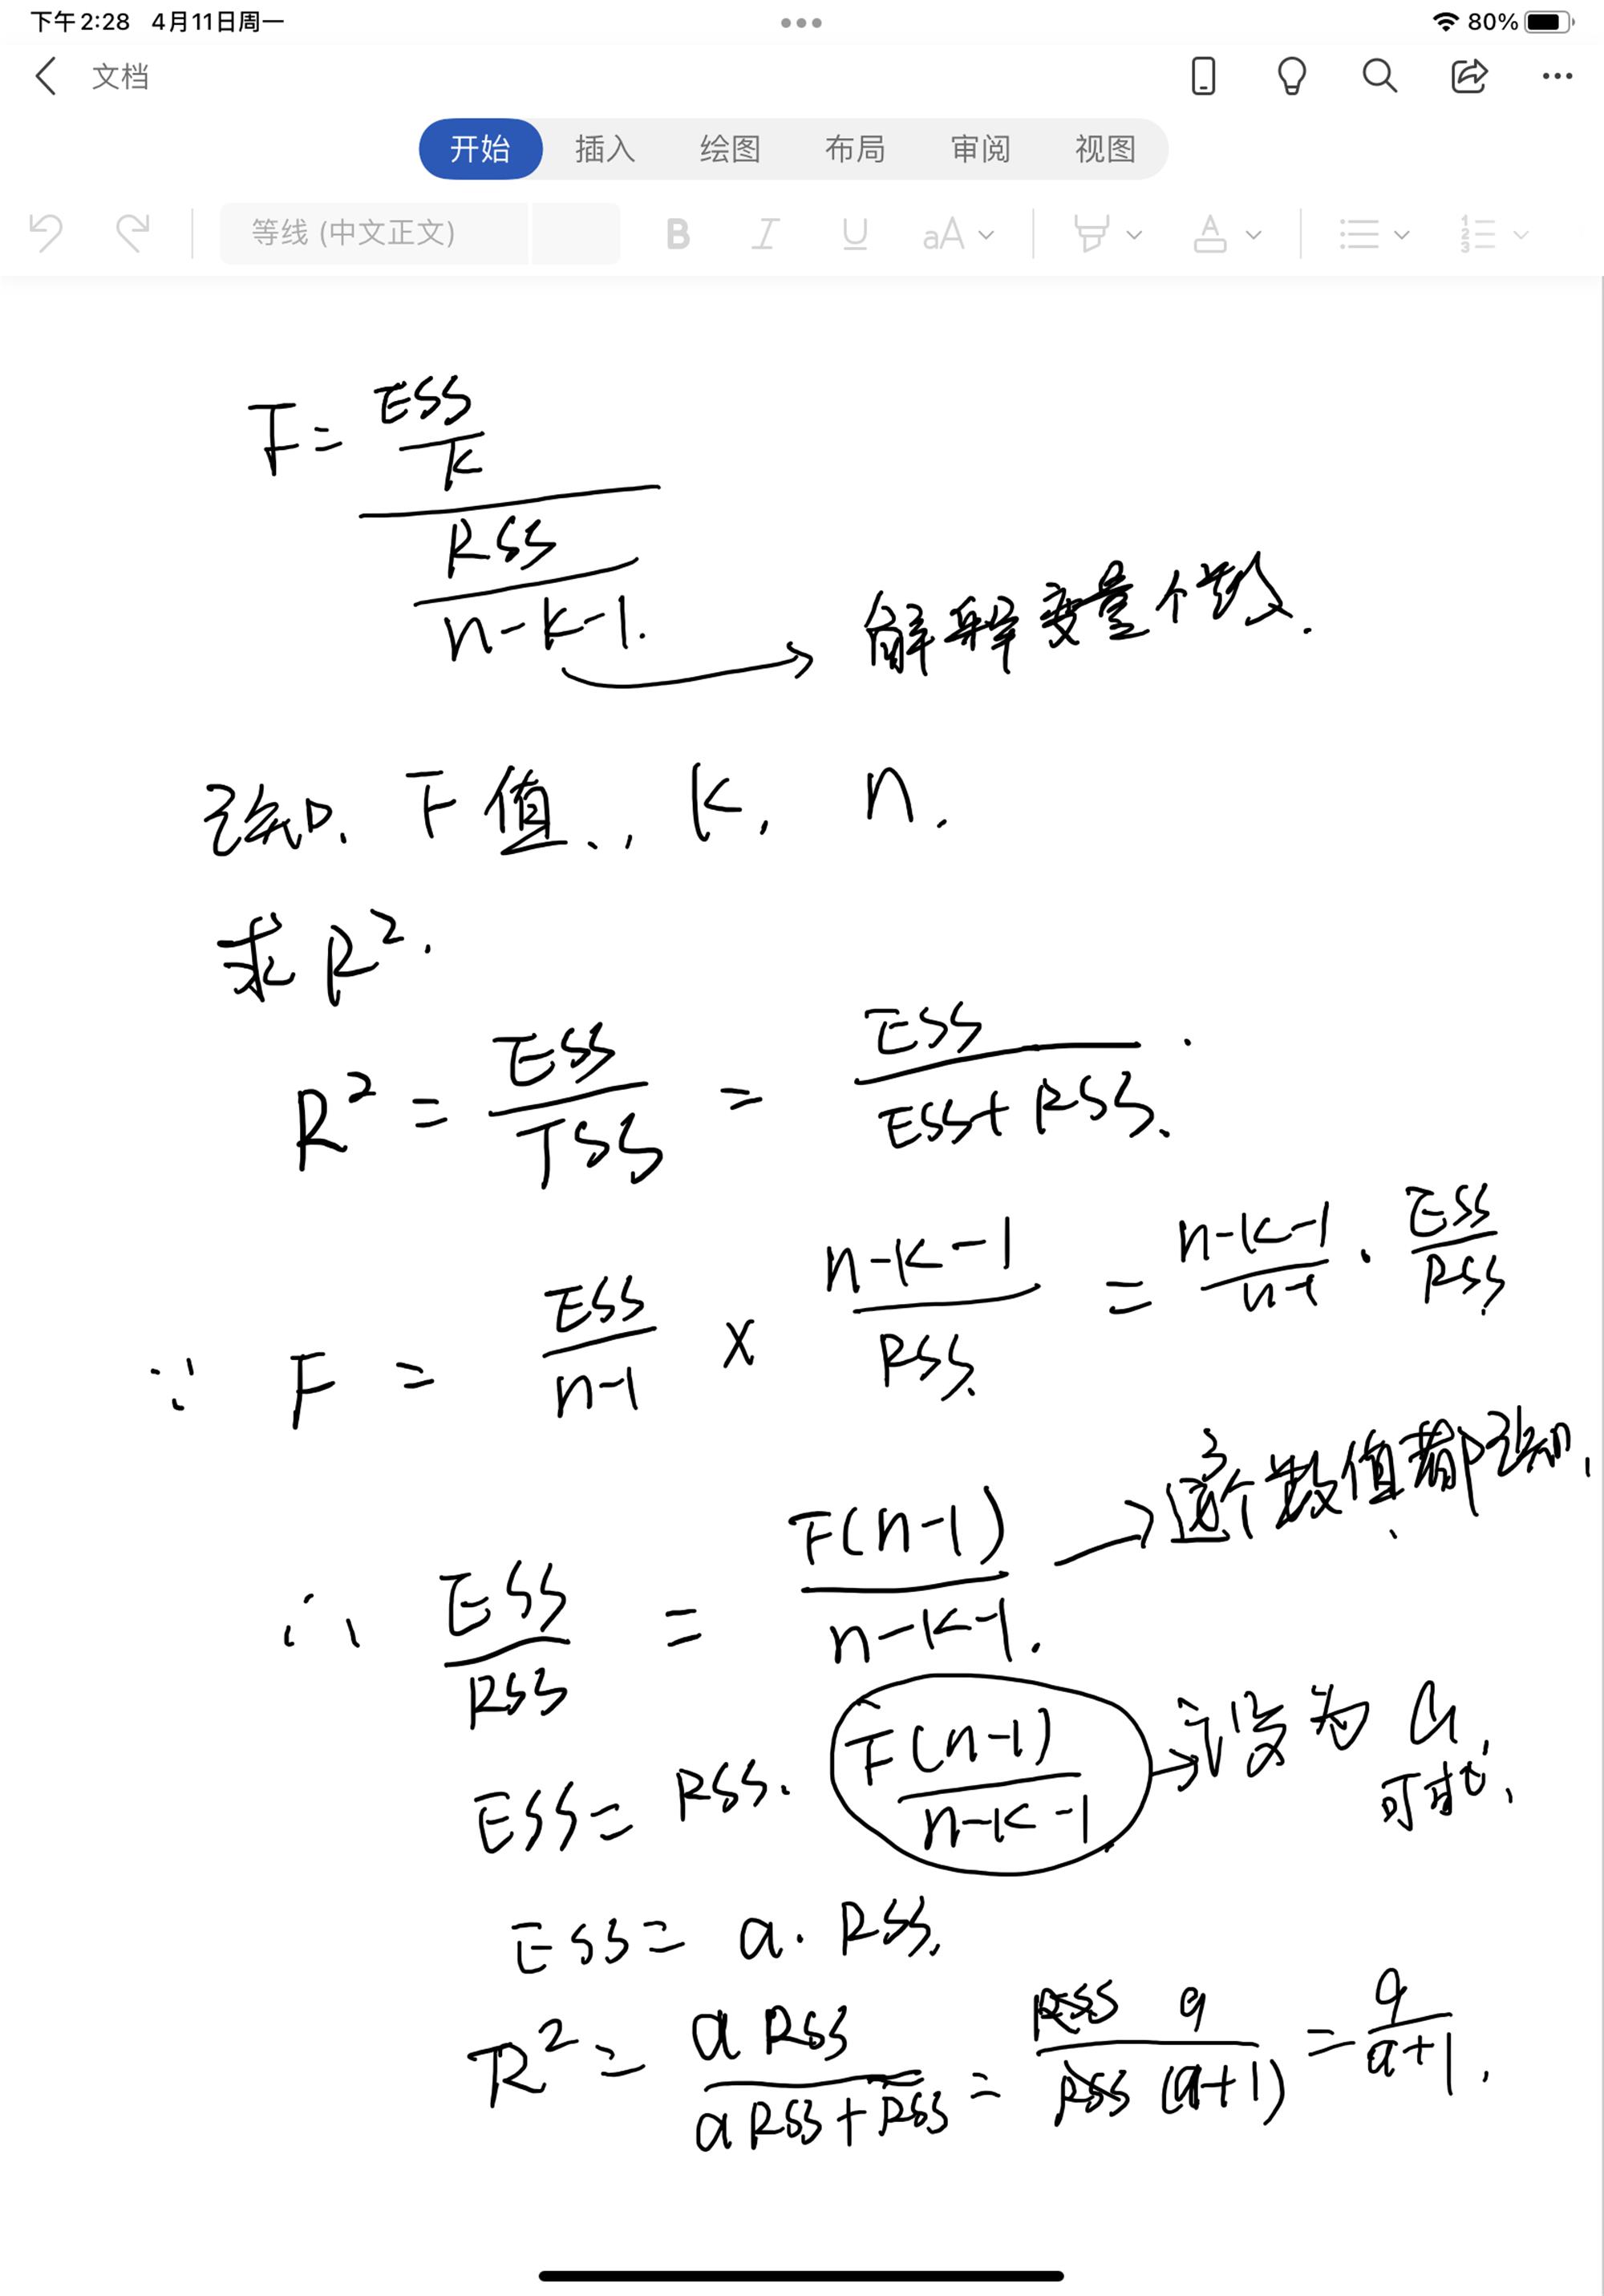 下午2:28 4月11日周一 80%
文档
开始 插入 绘图 布局 审阅 视图
等线 (中文正文) B I U aA A
F = (ESS/k) / (RSS/(n-k-1)).
→ 解释变量个数.
已知. F值., k, n.
求 R².
R² = ESS/TSS = ESS/(ESS+RSS).
∵ F = ESS/(n-1) × (n-k-1)/RSS. = (n-k-1)/(n-1) · ESS/RSS
∴ ESS/RSS = F(n-1)/(n-k-1). → 这3个数值都已知,
ESS = RSS. F(n-1)/(n-k-1) → 设为 a,
ESS = a. RSS.
R² = aRSS/(aRSS+RSS) = RSS a/(RSS (a+1)) = a/(a+1).